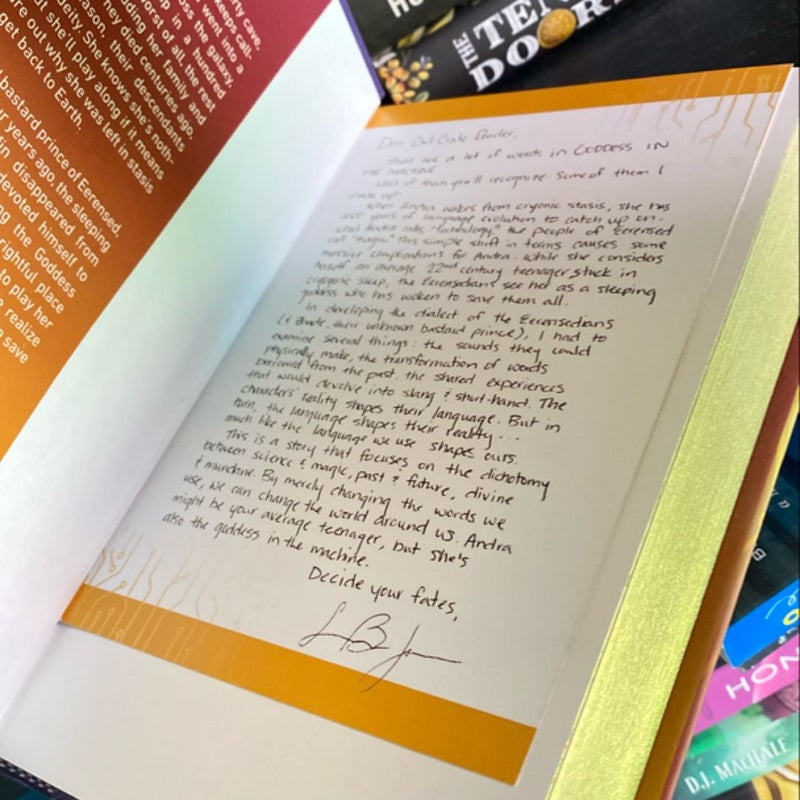 rly cave,
keeps call-
went into a
oss the galaxy,
p in a hundred
orst of all, the rest
dding her family and
ney died centuries ago,
ason, their descendants
deity. She knows she's noth-
t she'll play along if it means
re out why she was left in stasis
get back to Earth.
bastard prince of Eerensed,
ur years ago, the sleeping
fin disappeared from
devoted himself to
ng the Goddess
rightful place
to play her
realize
save
THE TEN
DOOR
Dear Owl Crate Reader,
There are a lot of words in GODDESS IN
THE MACHINE
Most of them you'll recognize. Some of them I
made up.
When Andra wakes from cryonic stasis, she has
1000 years of language evolution to catch up on.
What Andra calls "technology," the people of Eerensed
call "magic." This simple shift in terms causes some
massive complications for Andra. While she considers
herself an average 22nd century teenager stuck in
cryogenic sleep, the Eerensedians see her as a sleeping
goddess who has woken to save them all.
In developing the dialect of the Eerensedians
(& Zhade, their unknown bastard prince), I had to
examine several things: the sounds they could
physically make, the transformation of words
borrowed from the past, the shared experiences
that would devolve into slang & short-hand. The
characters' reality shapes their language. But in
turn, the language shapes their reality...
much like the language we use shapes ours.
This is a story that focuses on the dichotomy
between science & magic, past & future, divine
& mundane. By merely changing the words we
use, we can change the world around us. Andra
might be your average teenager, but she's
also the goddess in the machine.
Decide your fates,
HON
D.J. MACHALE